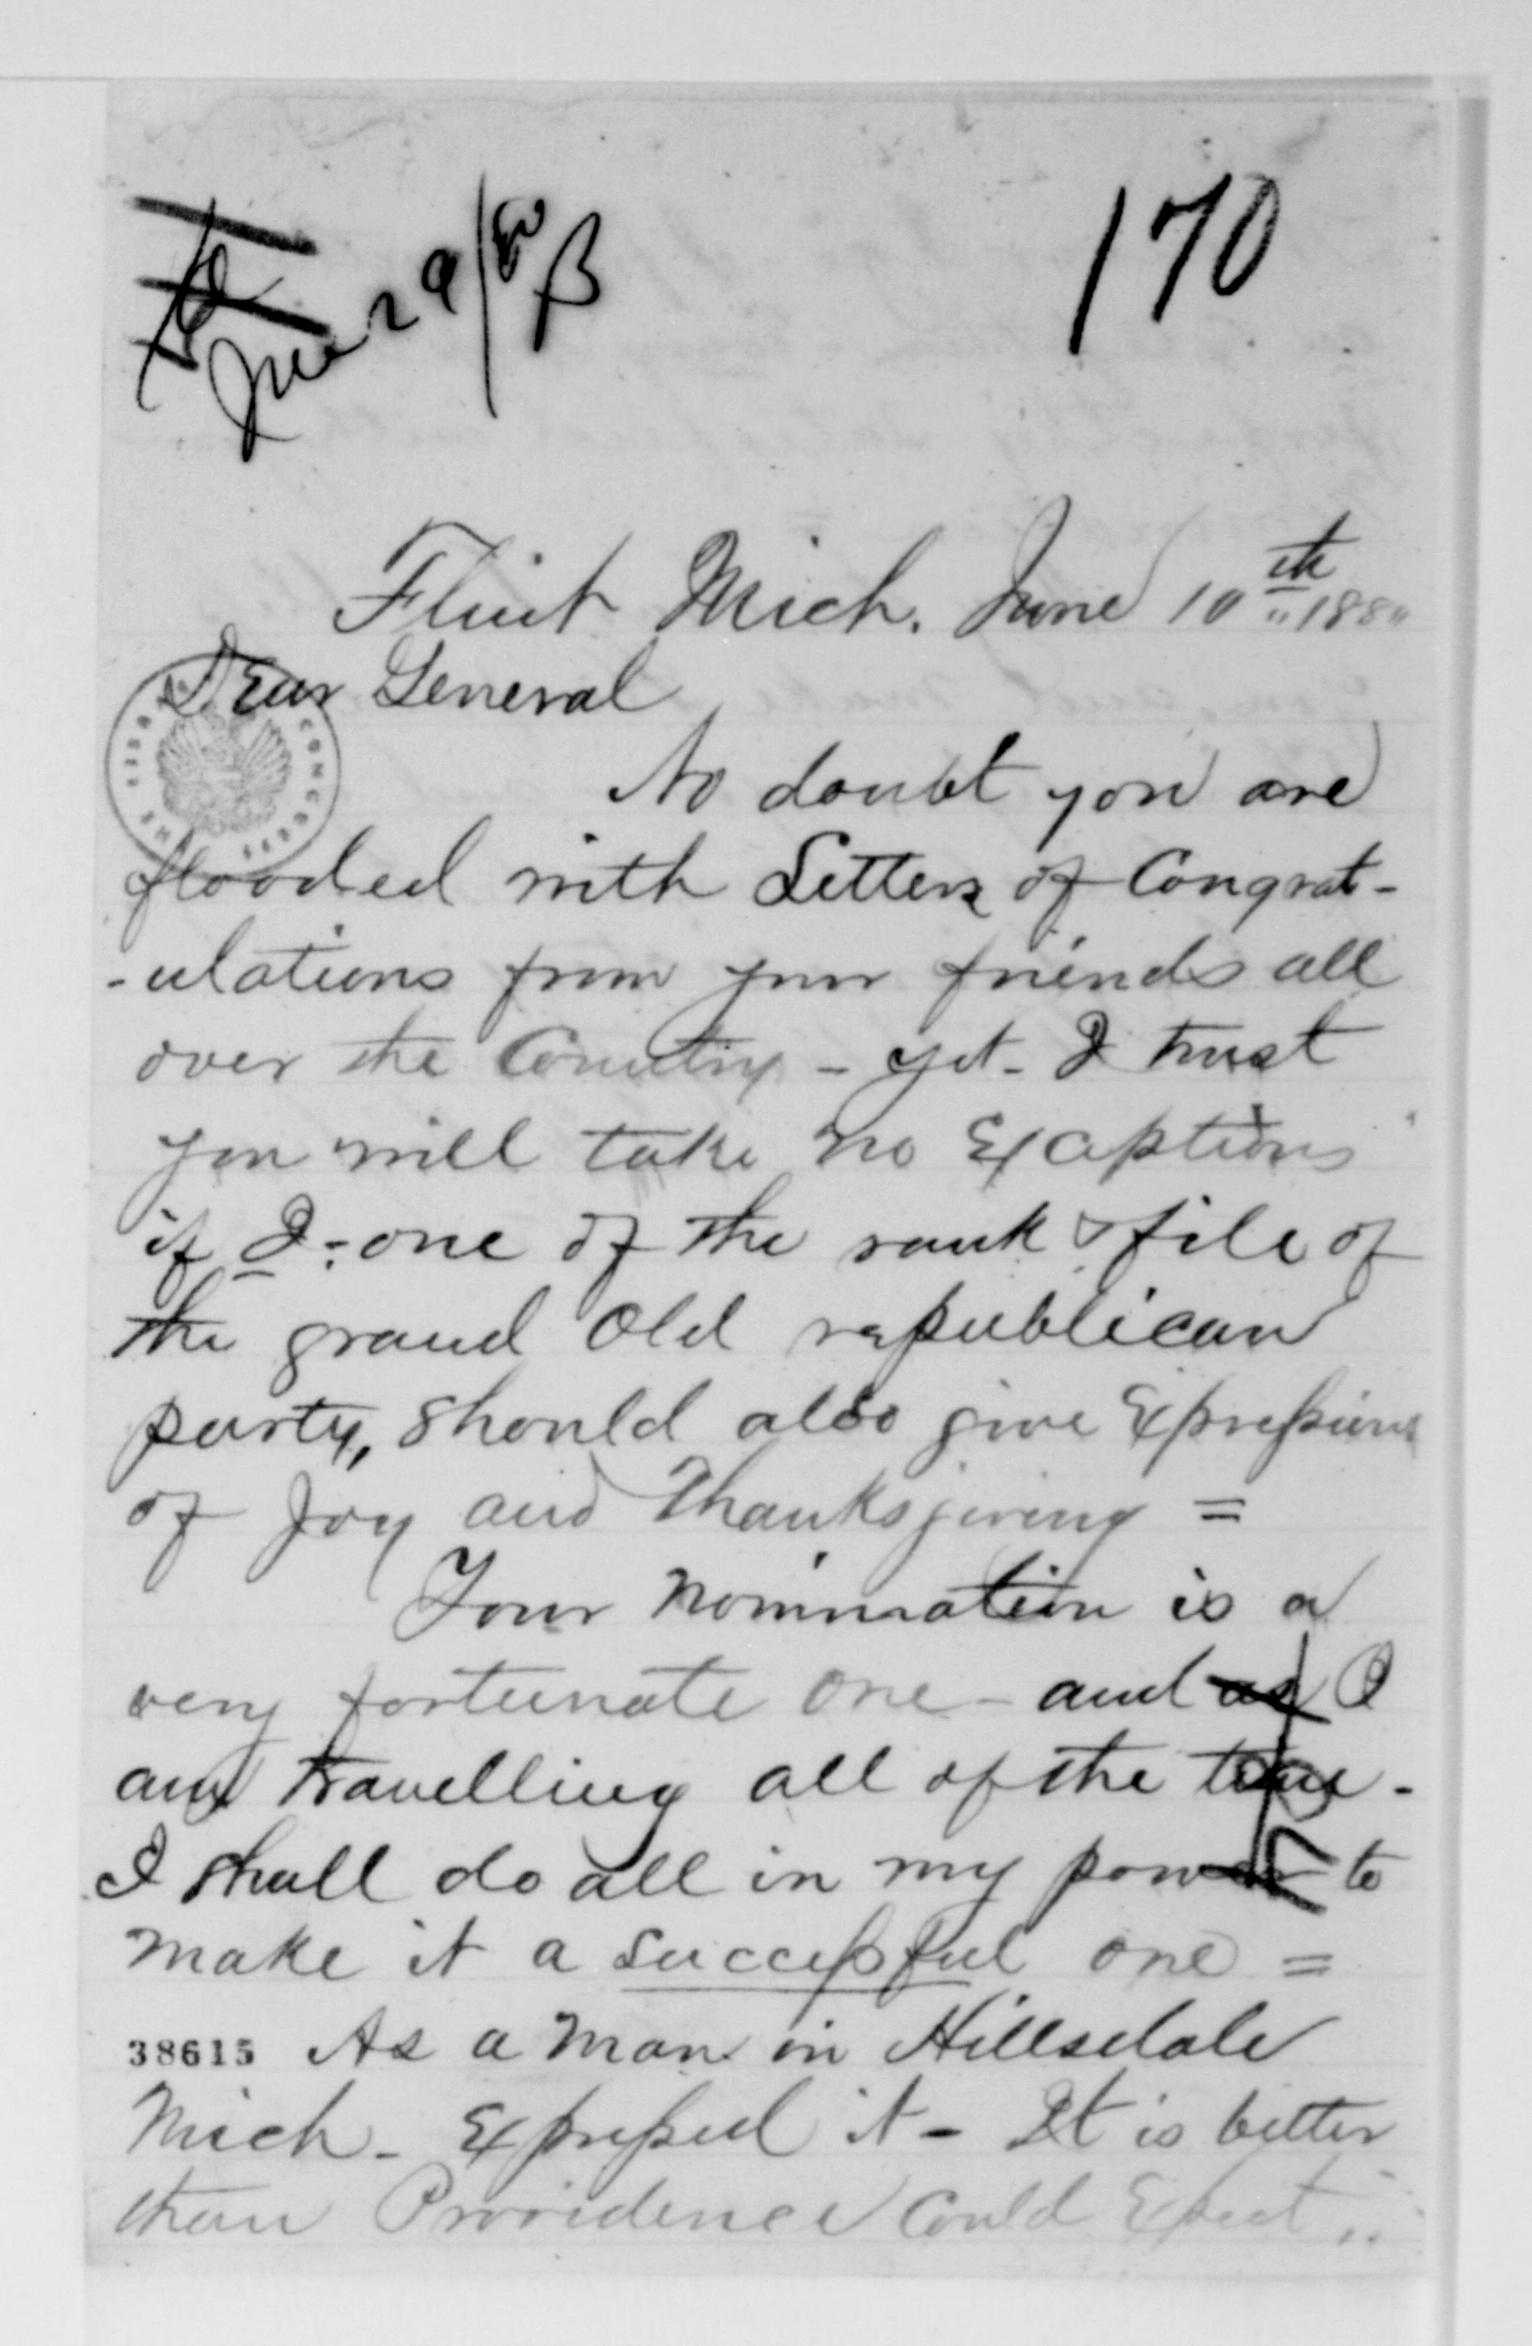 June 29/80
B
170
Flint Mich. June 10th 1880
Dear General
THE LIBRARY OF CONGRESS
No doubt you are
flooded with Letters of Congrat-
-ulations from your friends all
over the Country - yet - I trust
you will take no Exceptions
if I - one of the rank & file of
the grand Old republican
party, should also give Expressions
of Joy and Thanksgiving =
Your nomination is a
very fortunate one - and as I
am travelling all of the time -
I shall do all in my power to
make it a successful one =
38615 As a man in Hillsdale
Mich - Expressed it - It is better
than Providence Could Expect